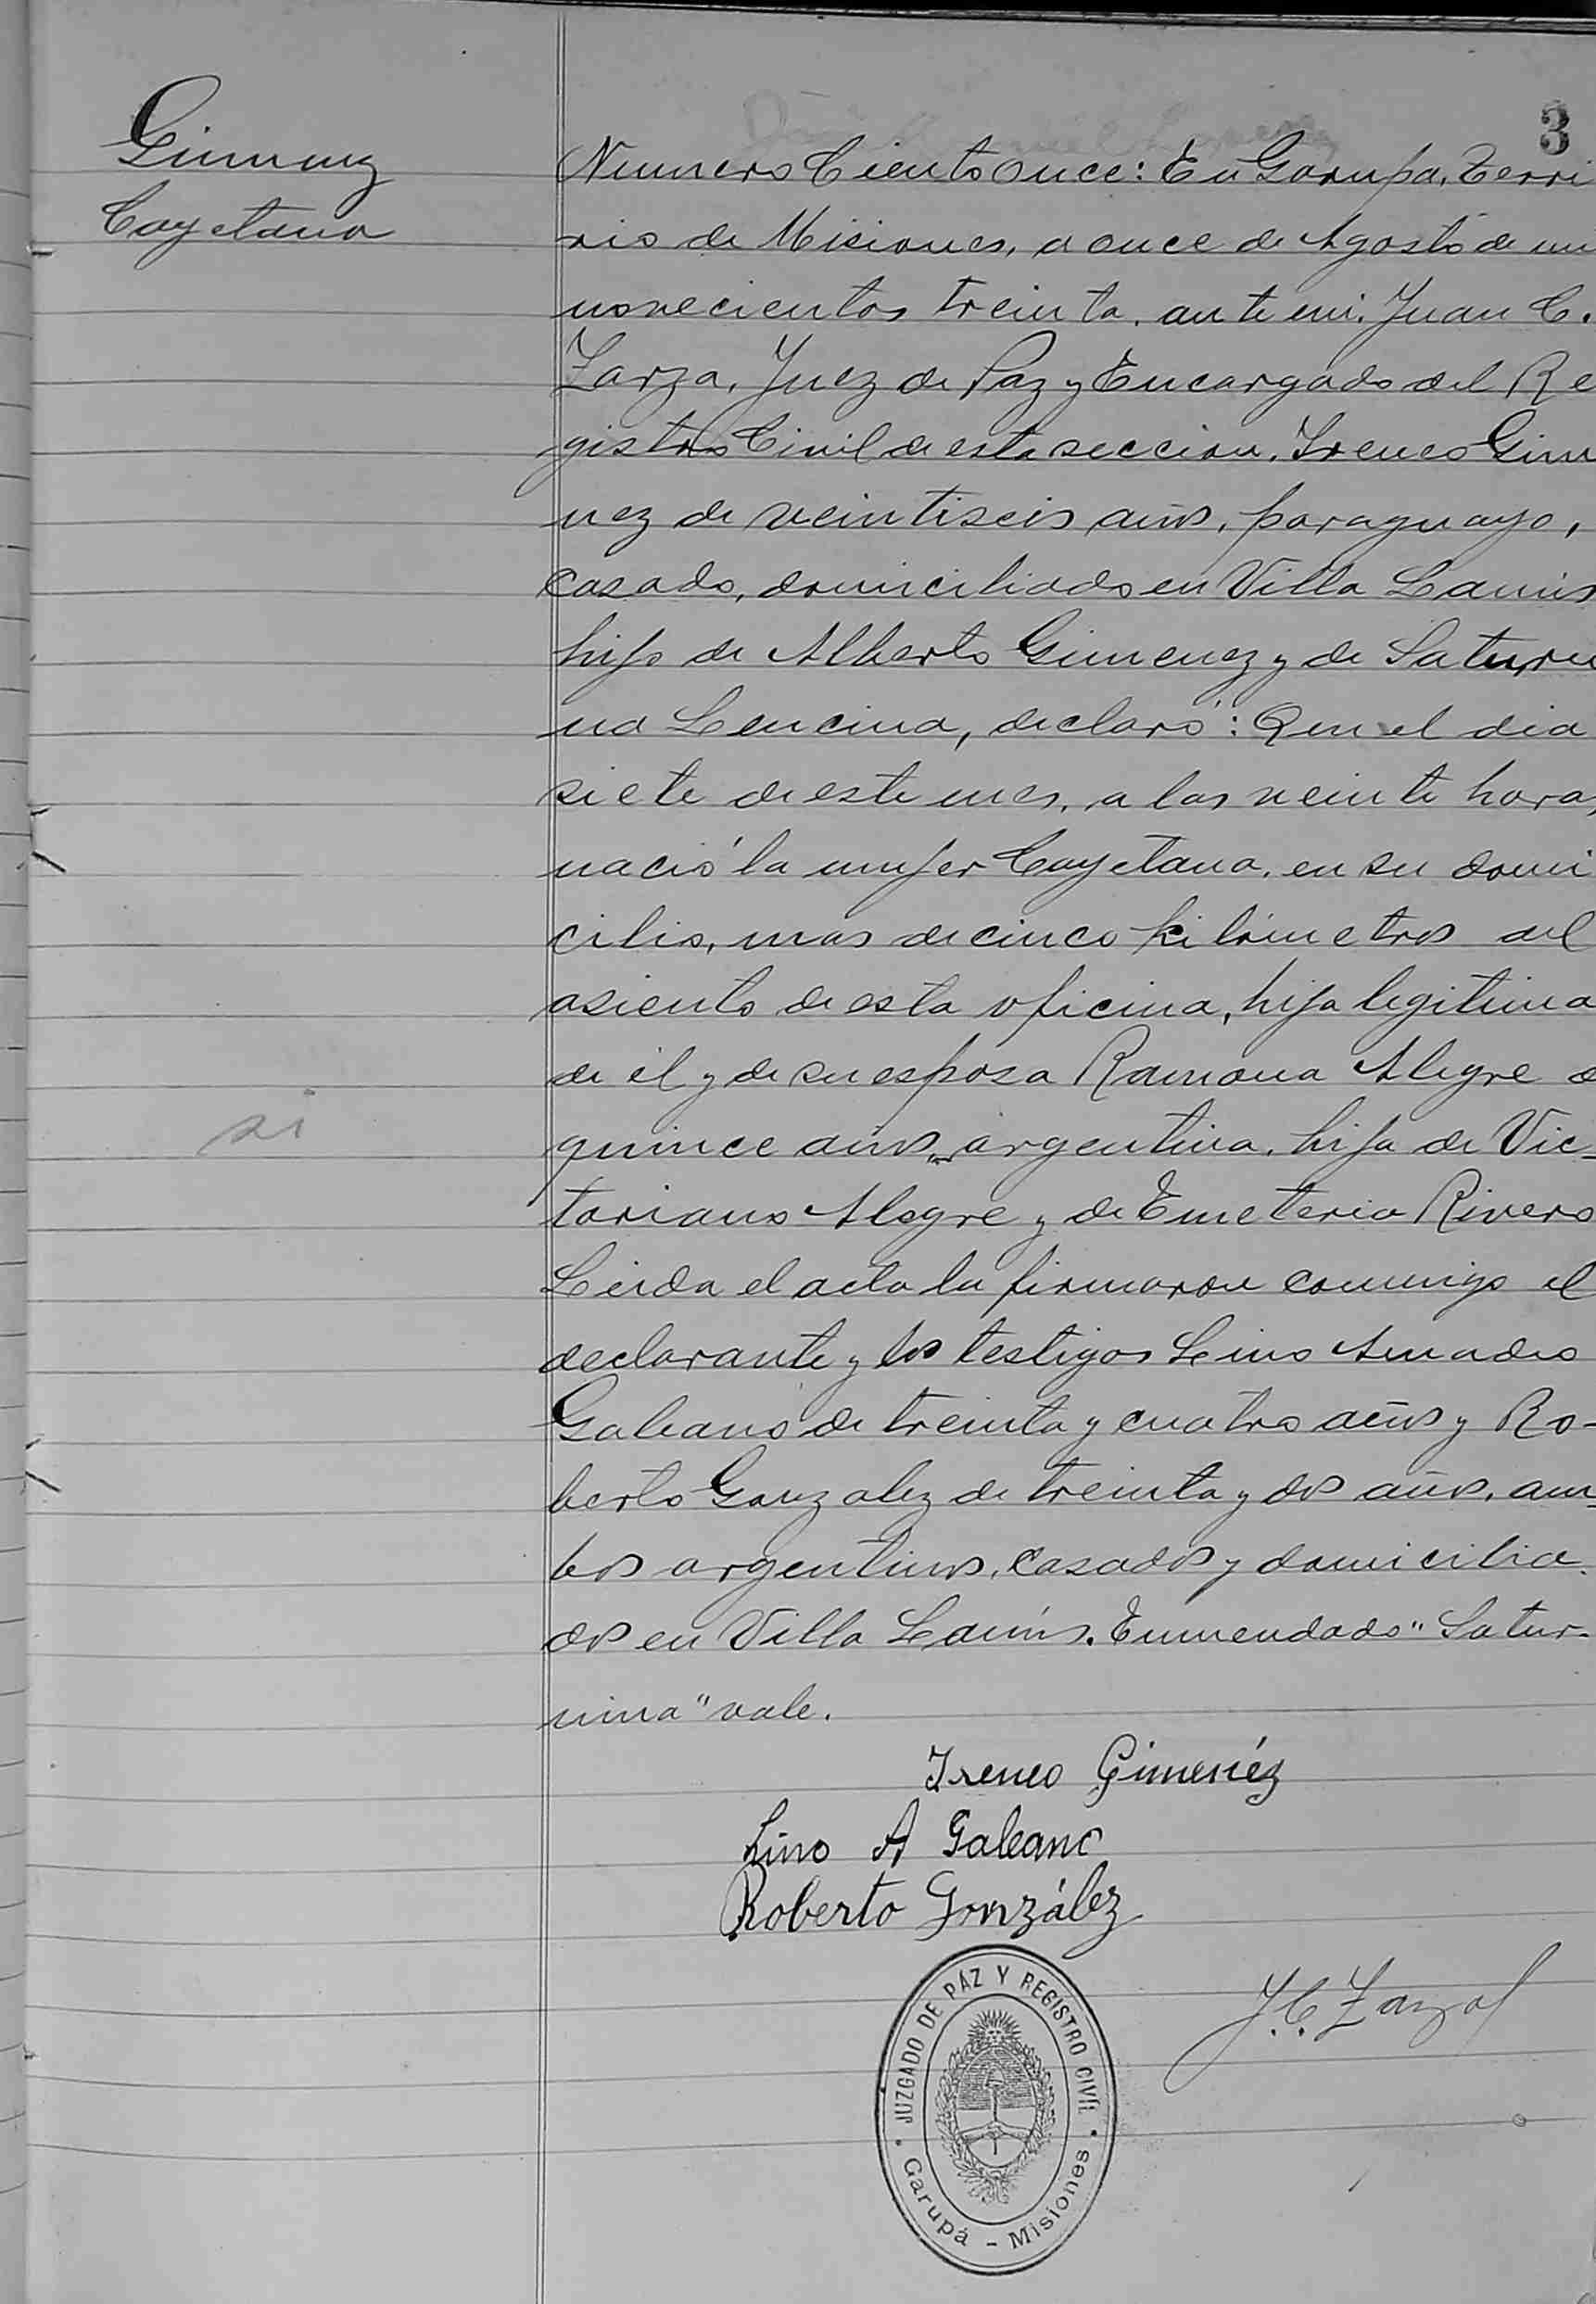 3
Gimenez
Cayetana
Numero Ciento once: En Garupa, Terri
rio de Misiones, a once de Agosto de un
novecientos treinta, ante mi, Juan C.
Zarza, Juez de Paz y Encargado del Re
gistro Civil de esta seccion, Ireneo Gim
nez de veintiseis años, paraguayo,
casado, domiciliado en Villa Lanús
hijo de Alberto Gimenez y de Satur
na Lencina, declaró: Que el dia
siete de este mes, a las veinte horas
nació la mujer Cayetana, en su domi
cilio, mas de cinco kilómetros del
asiento de esta oficina, hija legitima
de él y de su esposa Ramona Alegre d
quince años, argentina, hija de Vic-
toriano Alegre y de Emeteria Rivero
Leida el acta la firmaron conmigo el
declarante y los testigos Lino Amadeo
Galeano de treinta y cuatro años y Ro-
berto Gonzalez de treinta y dos años, am-
bos argentinos, casados y domicilia-
dos en Villa Lanús. Enmendado "Satur-
nina" vale.
si
Ireneo Gimenéz
Lino A Galeano
Roberto González
J. C. Zarza
JUZGADO DE PÁZ Y REGÍSTRO CIVÍL
Garupá - Misiones